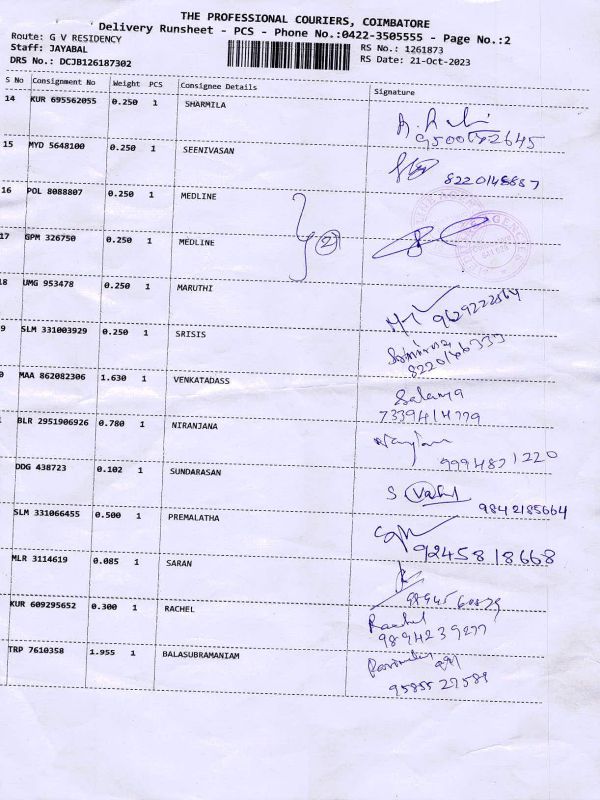 THE PROFESSIONAL COURIERS, COIMBATORE
Delivery Runsheet - PCS - Phone No.:0422-3505555 - Page No.:2
Route: G V RESIDENCY
Staff: JAYABAL RS No.: 1261873
DRS No.: DCJB126187302 RS Date: 21-Oct-2023
S No Consignment No Weight PCS Consignee Details Signature
14 KUR 695562055 0.250 1 SHARMILA
15 MYD 5648100 0.250 1 SEENIVASAN
16 POL 8088807 0.250 1 MEDLINE
17 GPM 326750 0.250 1 MEDLINE 2
8 UMG 953478 0.250 1 MARUTHI
9 SLM 331003929 0.250 1 SRISIS
MAA 862082306 1.630 1 VENKATADASS
7339414779
BLR 2951906926 0.780 1 NIRANJANA
9994871220
DDG 438723 0.102 1 SUNDARASAN S
9842185664
SLM 331066455 0.500 1 PREMALATHA
9245818668
MLR 3114619 0.085 1 SARAN
KUR 609295652 0.300 1 RACHEL Rachel
9894239277
TRP 7610358 1.955 1 BALASUBRAMANIAM
9585527589